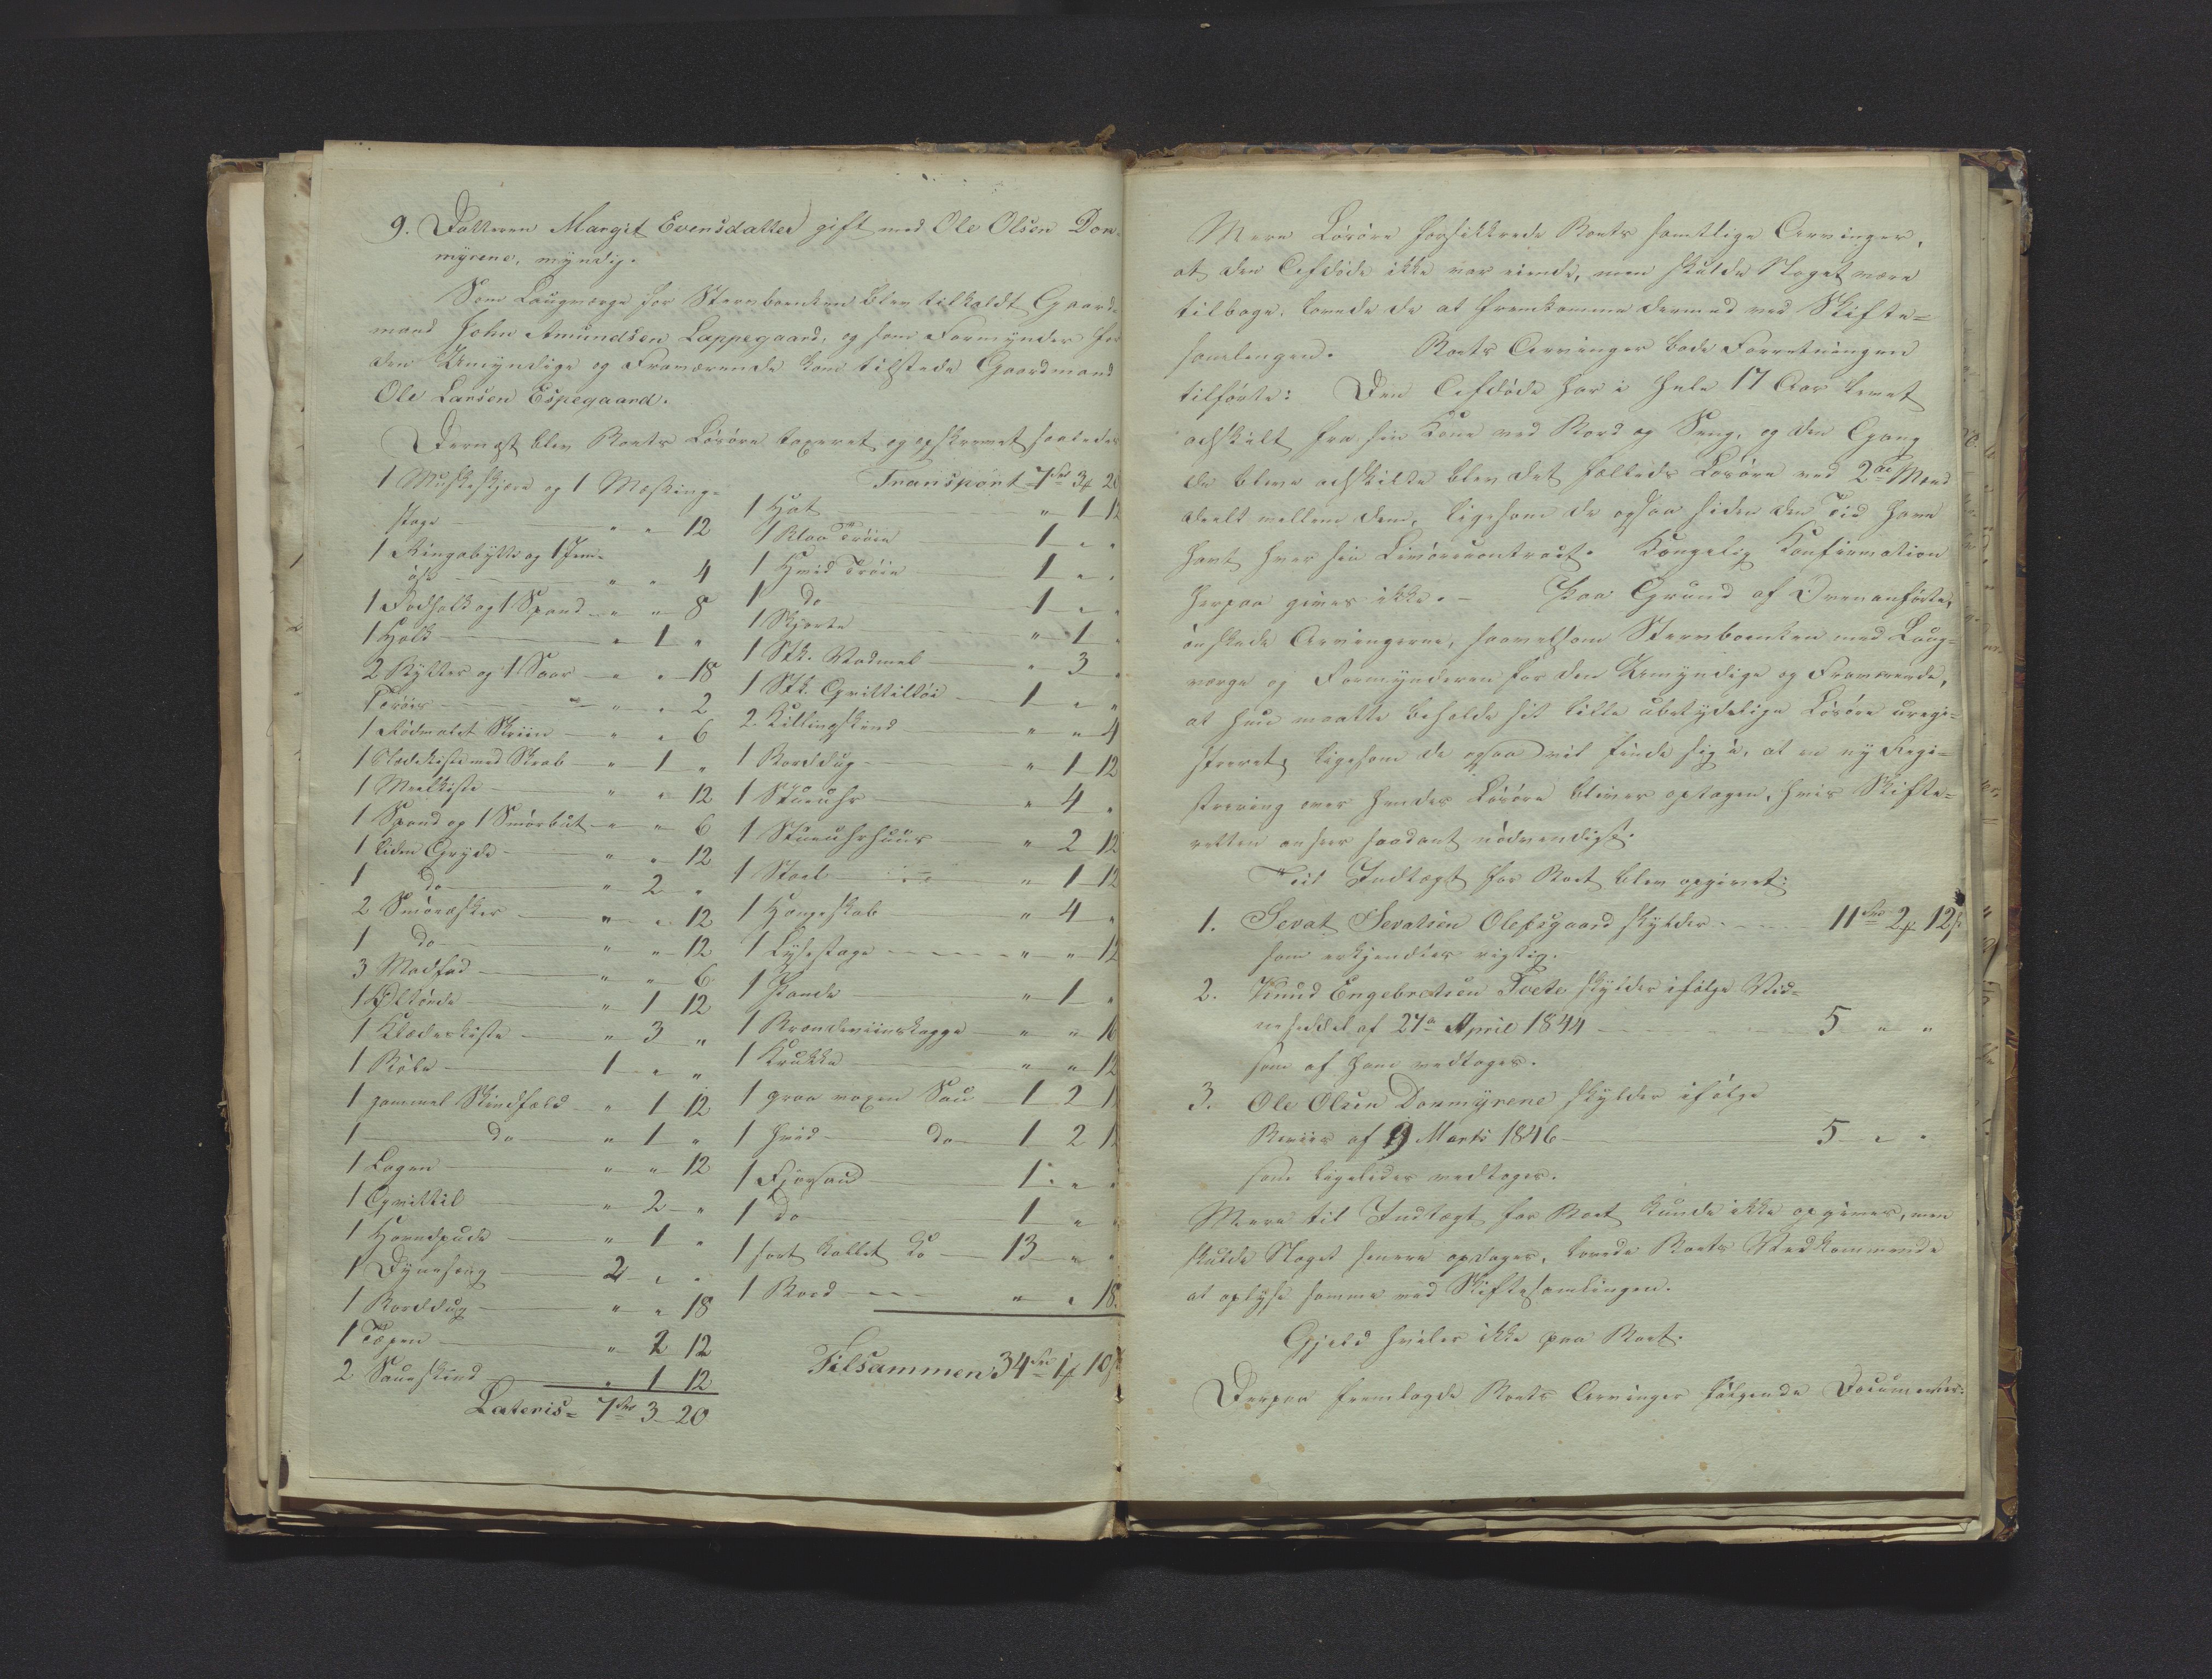 9. Datteren Margit Evensdatter gift med Ole Olsen Don-
myrene, myndig.
Som Laugværge for Stervboenken blev tilkaldt Gaard-
mand John Amundsen Lappegaard, og som Formynder for
den Umyndige og Fraværende kom tilstede Gaardmand
Ole Larsen Espegaard.
Dernæst blev Boets Løsøre taxeret og opskrevet saaledes
1 og 1 Messing-
stage " " 12
1 Ringebytte og 1 Jern-
øse " " 4
1 og 1 Spand " " 8
1 Holk " 1 "
2 Bytter og 1 Saar " " 18
" " 2
1 Rødmalet Skriin " " 6
1 med " 1 "
1 Meelkiste " " 12
1 Spand og 1 Smørbut " " 6
1 liden Gryde " " 12
1 do " 2 "
2 Smøræsker " " 12
1 do " " 12
3 Madfad " " 6
1 Øltønde " 1 12
1 Klædeskiste " 3 "
1 1 " "
1 gammel Skindfeld " 1 12
1 do " 1 "
1 Lagen " " 12
1 Qvittil " 2 "
1 Hovedpude " 1 "
1 Dyneseng 2 " "
1 Borddug " " 18
1 Tæpen " 2 12
2 Saueskind " 1 12
Lateris = 7 Spd 3 20
Transport 7 Spd 3 f 2
1 Hat " 1 12
1 Blaa Trøie 1 " "
1 Hvid Trøie 1 " "
1 do 1 " "
1 Skjorte " 1 "
1 Stk. Vadmel " 3 "
1 Stk. Qvittiltøi 1 " "
2 Killingskind " " 4
1 Borddug " 1 12
1 Stueuhr " 4 "
1 Stueuhrhuus " 2 12
1 Stoel " 1 12
1 Hengeskab " 4 "
1 Lysestage " " 12
1 Pande " 1 "
1 Brændeviinskagge " " 16
1 Krukke " " 12
1 graa voxen Sau 1 2 1
1 hvid do 1 2 1
1 Fjorsau 1 " "
1 do 1 " "
1 sort kollet Ko 13 " "
1 Bord " " 18
Tilsammen 34 Spd 1 f 10 s
Mere Løsøre forsikkrede Boets samtlige Arvinger,
at den Afdøde ikke var eiende, men skulde Noget være
tilbage, lovede de at fremkomme dermed ved Skifte-
samlingen. Boets Arvinger bade Forretningen
tilførte: Den Afdøde har i hele 17 Aar levet
adskilt fra sin Kone ved Bord og Seng, og den Gang
de bleve adskilte blev det fælleds Løsøre ved 2de Mænd
deelt mellem dem, ligesom de ogsaa siden den Tid have
havt hver sin Livørecontract. Kongelig Konfirmation
herpaa gives ikke. - Paa Grund af Ovenanførte,
ønskede Arvingerne, saavelsom Stervboenken med Laug-
værge og Formynderen for den Umyndige og Fraværende,
at hun maatte beholde sit lille ubetydelige Løsøre uregi-
streret, ligesom de ogsaa vil finde sig i, at en ny Regi-
strering over hendes Løsøre bliver optagen, hvis Skifte-
retten anseer saadant nødvendigt.
Til Indtægt for Boet blev opgivet:
1. Sevat Sevatsen Olefsgaard skylder 11 Spd 2 f 12 s
som erkjendtes rigtig.
2. Knud Engebretsen Tvete skylder ifølge Vid-
neseddel af 27de April 1844 5 " "
som af ham vedtages.
3. Ole Olsen Donmyrene skylder ifølge
Beviis af 9 Marts 1846 5 " "
som ligeledes vedtages.
Mere til Indtægt for Boet kunde ikke opgives, men
skulde Noget senere opdages, lovede Boets Vedkommende
at oplyse samme ved Skiftesamlingen.
Gjeld hviler ikke paa Boet.
Derpaa fremlagde Boets Arvinger følgende Documenter: